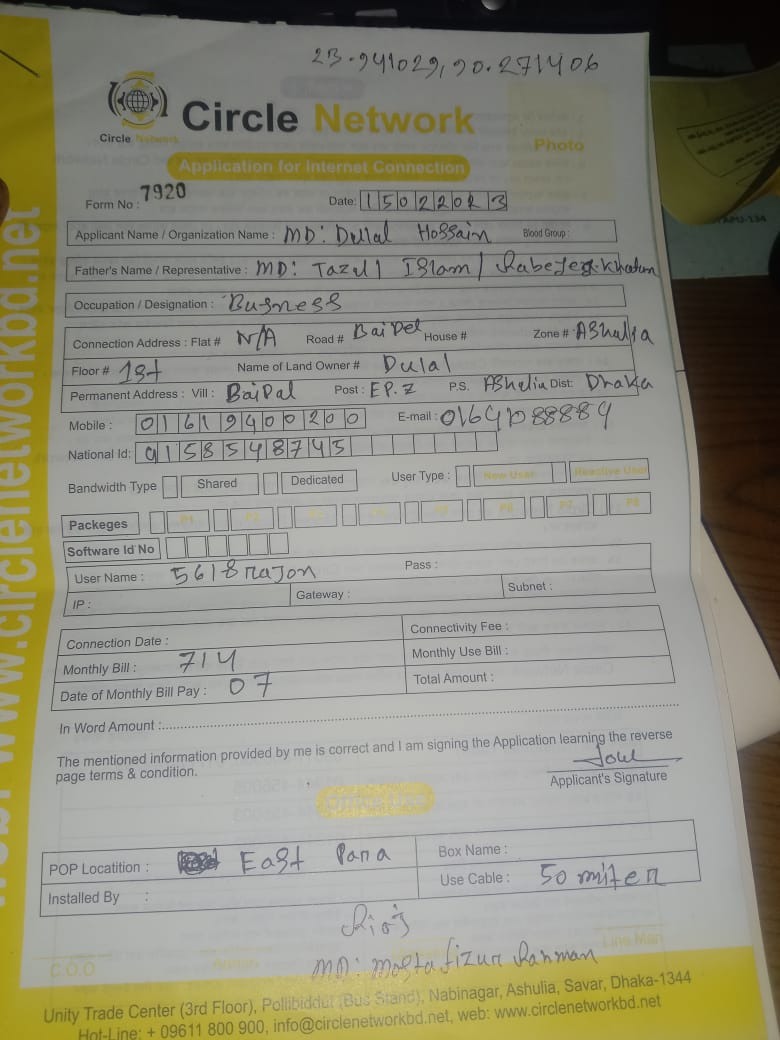 23.941029, 90.271406
Circle Network
Circle Network
Photo
Application for Internet Connection
Form No : 7920
Date: 15022023
Applicant Name / Organization Name : MD: Dulal Hossain Blood Group :
Father's Name / Representative : MD: Tazul Islam / Khatun
Occupation / Designation : Busness
Connection Address : Flat # N/A Road # BaiPel House # Zone # AShulia
Floor # 1st Name of Land Owner # Dulal
Permanent Address : Vill : BaiPal Post : EP.Z P.S. AShulia Dist: Dhaka
Mobile : 01619400200 E-mail : 01641088889
National Id: 9158548745
Bandwidth Type Shared Dedicated User Type : New User Reactive User
Packeges P1 P2 P3 P4 P5 P6 P7 P8
Software Id No
User Name : 5618rajon Pass :
IP : Gateway : Subnet :
Connection Date : Connectivity Fee :
Monthly Bill : 714 Monthly Use Bill :
Date of Monthly Bill Pay : 07 Total Amount :
In Word Amount :
The mentioned information provided by me is correct and I am signing the Application learning the reverse
page terms & condition.
Applicant's Signature
Office Use
POP Locatition : East Para Box Name :
Installed By : Use Cable : 50 miter
C.O.O Line Man
MD: Mostafizur Rahman
Unity Trade Center (3rd Floor), Pollibiddut (Bus Stand), Nabinagar, Ashulia, Savar, Dhaka-1344
Hot-Line: + 09611 800 900, info@circlenetworkbd.net, web: www.circlenetworkbd.net
www.circlenetworkbd.net